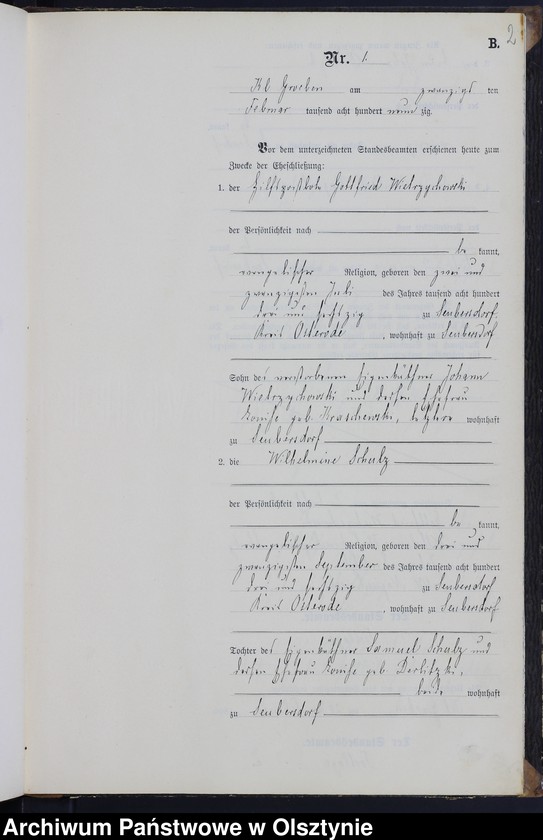 B.
2
Nr. 1.
Kl Groeben am zwanzigsten
Februar tausend acht hundert neunzig.
Vor dem unterzeichneten Standesbeamten erschienen heute zum
Zwecke der Eheschließung:
1. der Hilfspostbote Gottfried Wietrzychowski
der Persönlichkeit nach
be kannt,
evangelischer Religion, geboren den zwei und
zwanzigsten Juli des Jahres tausend acht hundert
drei und sechzig zu Seubersdorf,
Kreis Osterode, wohnhaft zu Seubersdorf
Sohn des verstorbenen Eigenkäthner Johann
Wietrzychowski und dessen Ehefrau
Louise geb. Kraschewski, letztere wohnhaft
zu Seubersdorf
2. die Wilhelmine Schulz
der Persönlichkeit nach
be kannt,
evangelischer Religion, geboren den drei und
zwanzigsten September des Jahres tausend acht hundert
drei und sechzig zu Seubersdorf
Kreis Osterode, wohnhaft zu Seubersdorf
Tochter des Eigenkäthner Samuel Schulz und
dessen Ehefrau Louise geb
beide wohnhaft
zu Seubersdorf
Archiwum Państwowe w Olsztynie